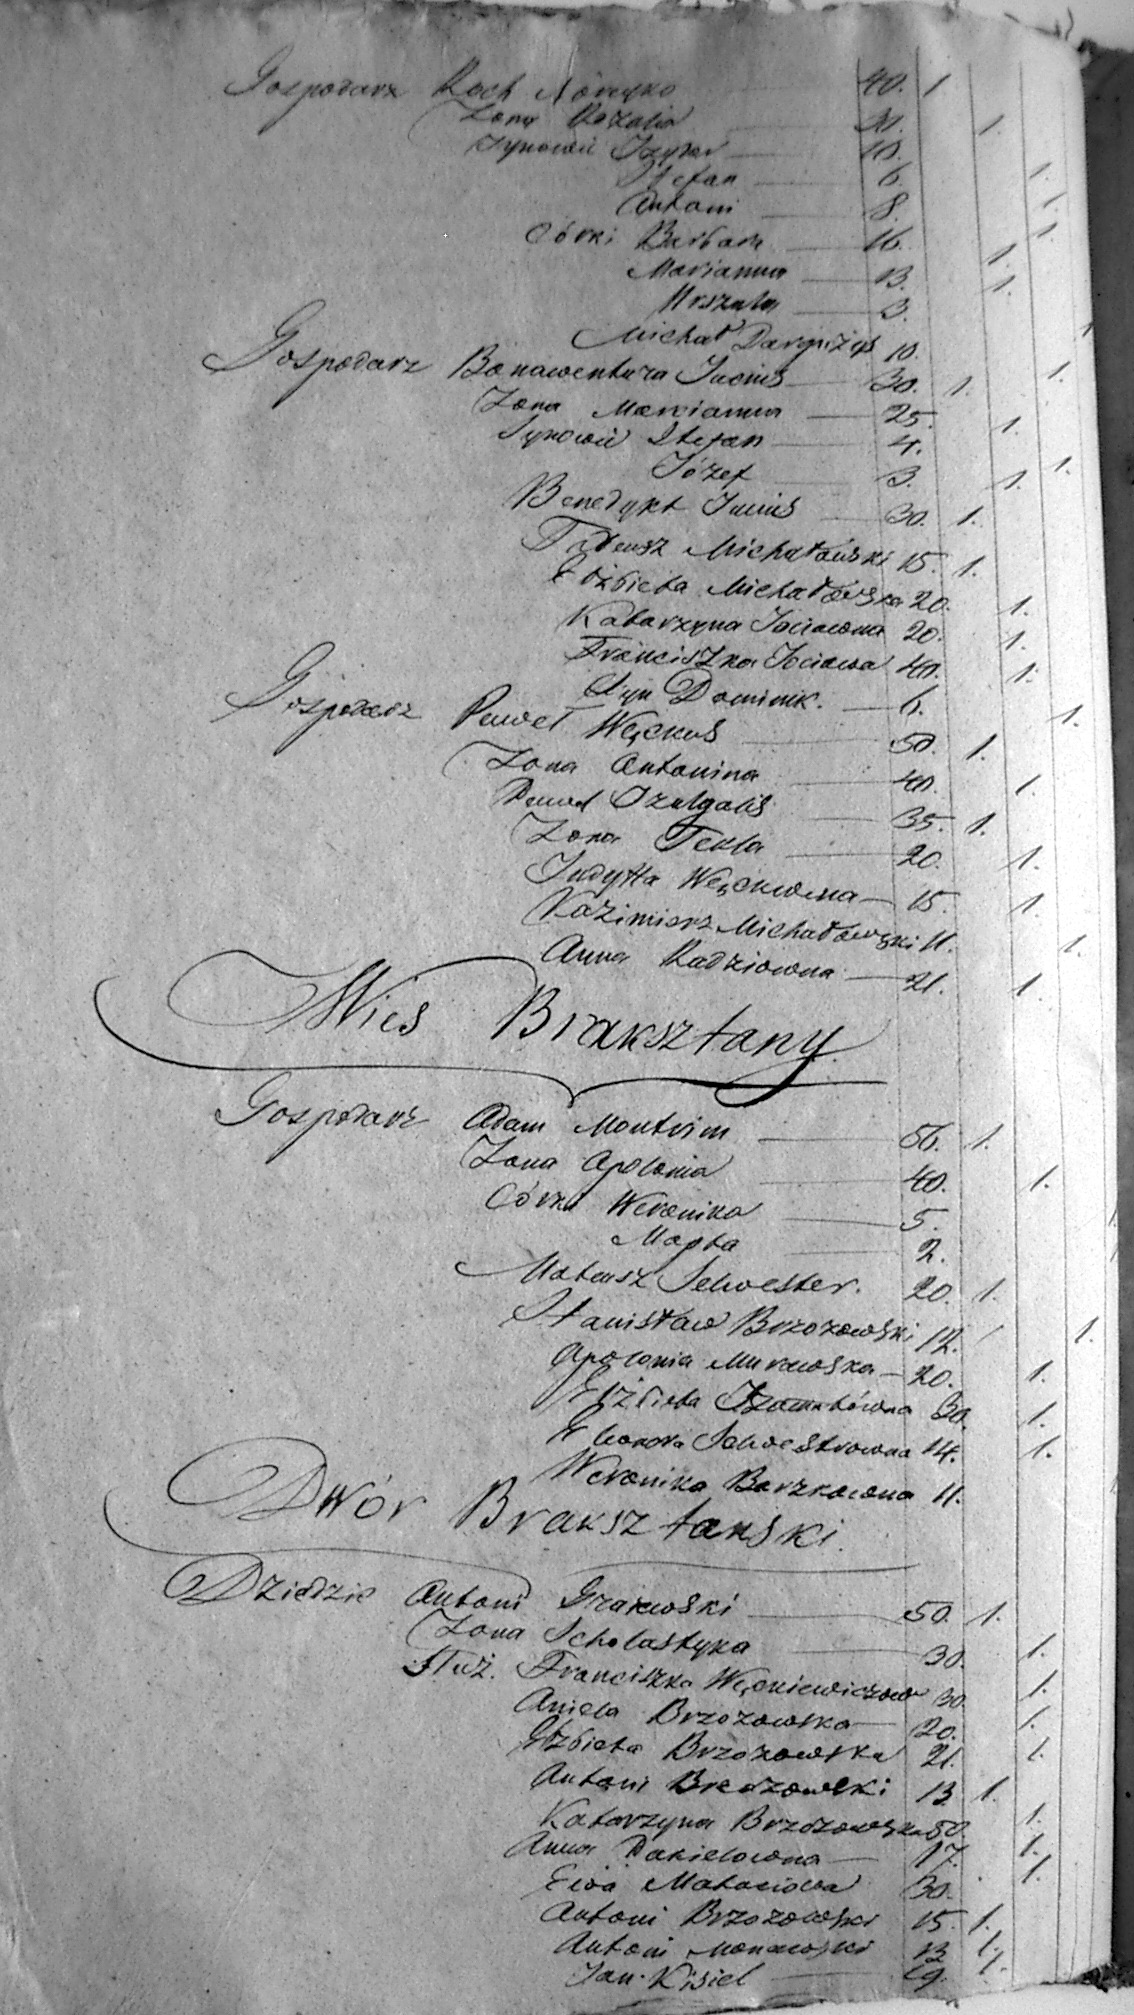 Gospodarz Roch 40. 1
Żona Rozalia 1.
Synowie 10.
Stefan 6. 1.
Antoni 8. 1.
Córki Barbara 16. 1.
Marianna 13. 1.
Urszula 3. 1.
Michał 10. 1
Gospodarz Bonawentura 30. 1. 1.
Żona Marianna 25. 1.
Synowie Stefan 4. 1.
Józef 3. 1.
Benedykt 30. 1.
Tadeusz Michałowski 15. 1.
Elżbieta Michałowska 20. 1.
Katarzyna 20. 1.
Franciszka 40. 1.
Syn Dominik. 6. 1.
Gospodarz Paweł Węckus 50. 1.
Żona Antonina 40. 1.
Paweł Szulgalis 35. 1.
Żona Tekla 20. 1.
Judytta 15. 1.
Kazimierz Michałowski 11. 1.
Anna Radziowna 21. 1.
Wieś Braksztany
Gospodarz Adam Montrim 56. 1.
Żona Apolonia 40. 1.
Córki Weronika 5.
Magda 2.
Mateusz Selwester. 20. 1.
Stanisław Brzozowski 12. 1.
Apolonia Murawska 20. 1.
Elżbieta 30. 1.
Eleonora Selwestrowna 14. 1.
Weronika Barzkowna 11.
Dwór Braksztanski.
Dziedzic Antoni Grajewski 50. 1.
Żona Scholastyka 30. 1.
Służ. Franciszka Węckiewiczow 30. 1.
Aniela Brzozowska 20. 1.
Elżbieta Brzozowska 21. 1.
Antoni Brzozowski 13. 1.
Katarzyna Brzozowska 50. 1.
Anna Pakielowna 17. 1.
Ewa 30. 1.
Antoni Brzozowski 15. 1.
Antoni 1.
Jan Kisiel 1.